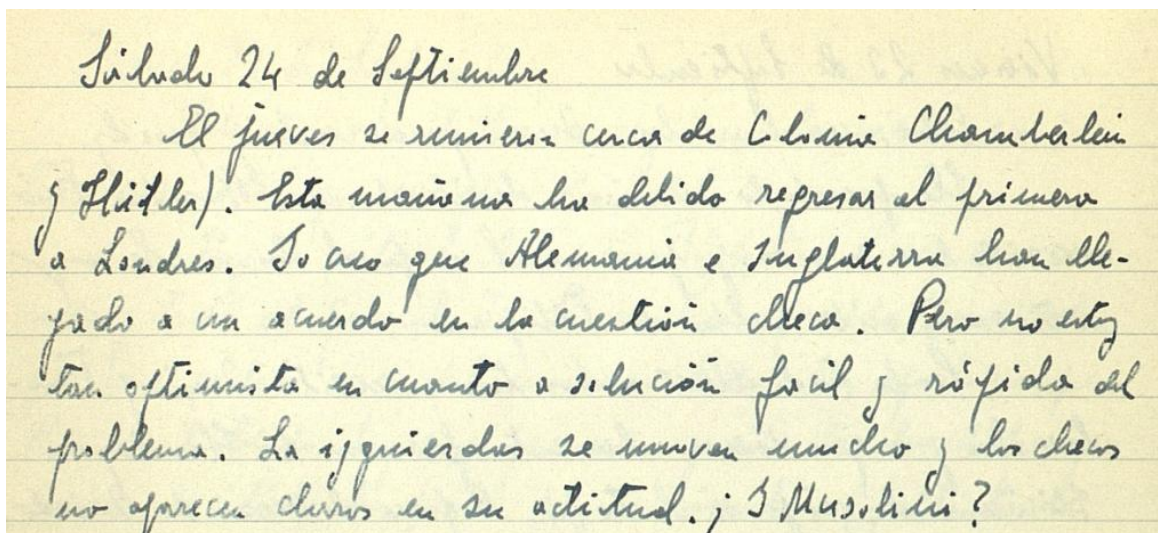 Sábado 24 de Septiembre
El jueves se runieron cerca de Colonia Chamberlein
y Hidtler). Esta mañana ha debido regresar el primero
a Londres. Yo creo que Alemania e Inglaterra han lle-
gado a un acuerdo en la cuestión checa. Pero no estoy
tan optimista en cuanto a solución facil y rápida del
problema. La izquierdas se mueven mucho y los checos
no aparecen claros en su actitud. ¿Y Musolini?